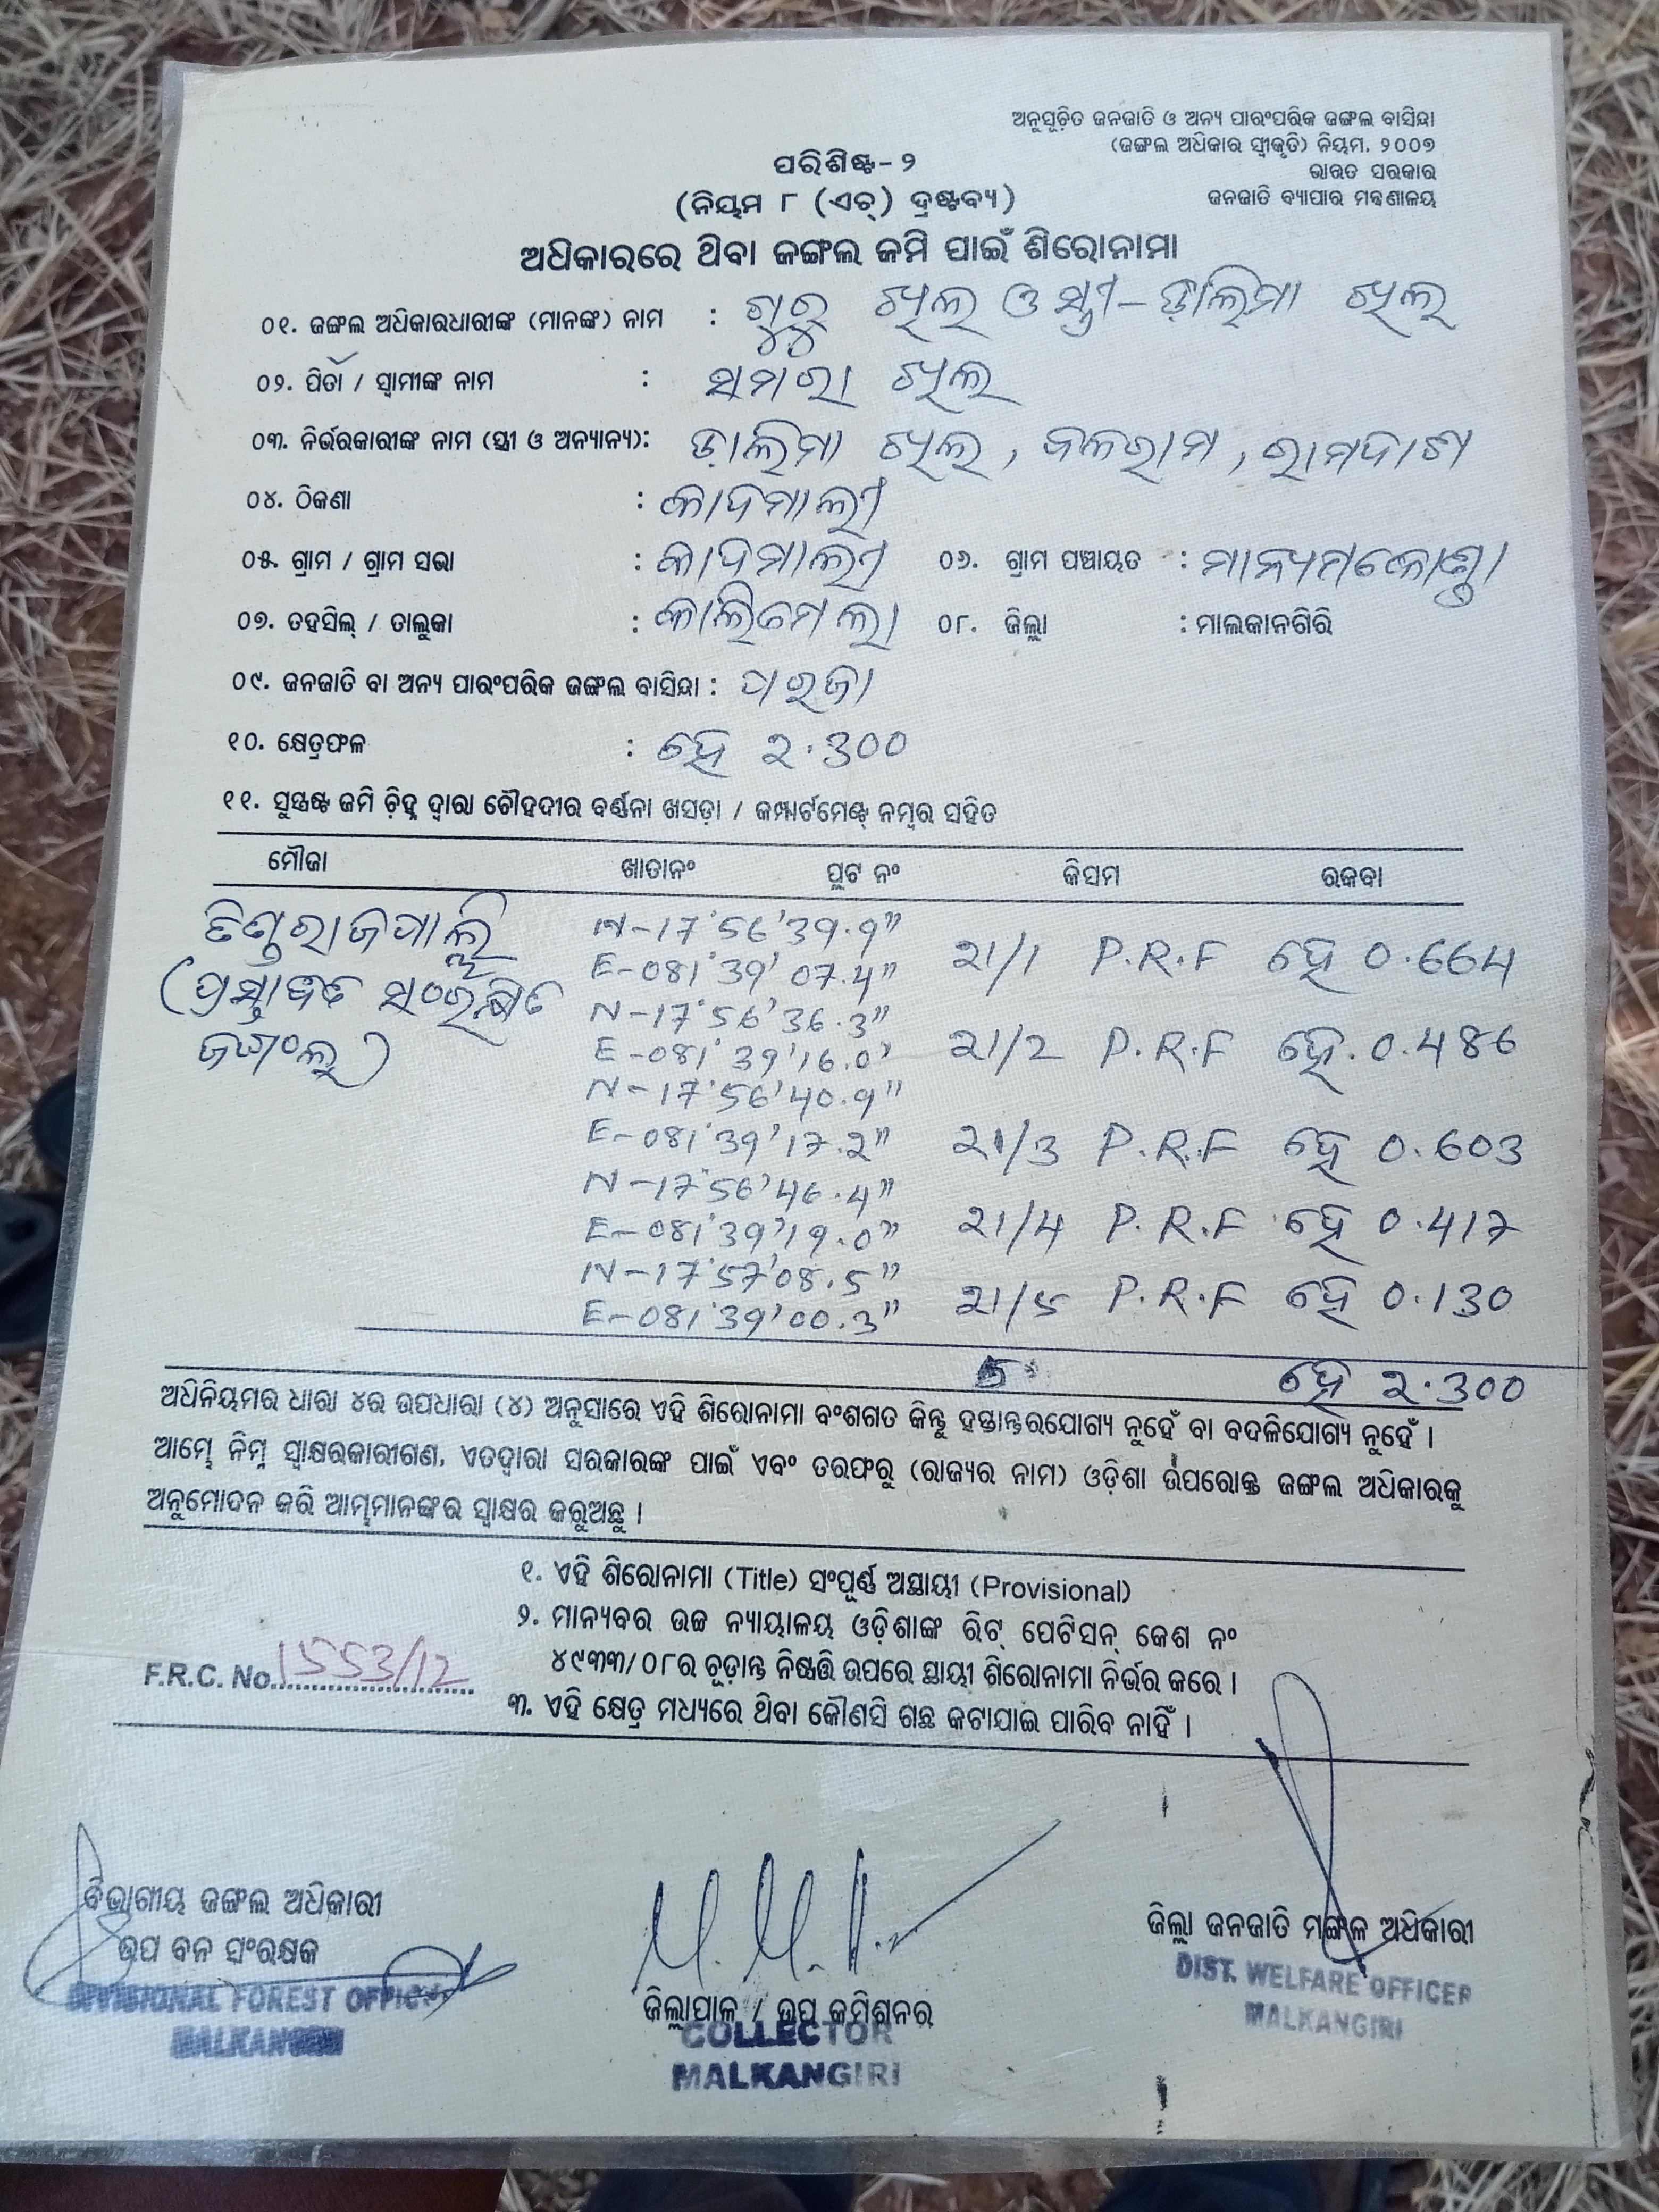 ଅନୁସୂଚିତ ଜନଜାତି ଓ ଅନ୍ୟ ପାରଂପରିକ ଜଙ୍ଗଲ ବାସିନ୍ଦା
(ଜଙ୍ଗଲ ଅଧିକାର ସ୍ୱୀକୃତି) ନିୟମ, ୨୦୦୭
ଭାରତ ସରକାର
ଜନଜାତି ବ୍ୟାପାର ମନ୍ତ୍ରଣାଳୟ
ପରିଶିଷ୍ଟ-୨
(ନିୟମ ୮ (ଏଚ୍) ଦ୍ରଷ୍ଟବ୍ୟ)
ଅଧିକାରରେ ଥିବା ଜଙ୍ଗଲ ଜମି ପାଇଁ ଶିରୋନାମା
୦୧. ଜଙ୍ଗଲ ଅଧିକାରଧାରୀଙ୍କ (ମାନଙ୍କ) ନାମ : ଗୁରୁ ଖିଲ ଓ ସ୍ତ୍ରୀ-ଡ଼ାଲିମା ଖିଲ
୦୨. ପିତା / ସ୍ୱାମୀଙ୍କ ନାମ : ସମରା ଖିଲ
୦୩. ନିର୍ଭରକାରୀଙ୍କ ନାମ (ସ୍ତ୍ରୀ ଓ ଅନ୍ୟାନ୍ୟ): ଡ଼ାଲିମା ଖିଲ, ବଳରାମ, ରାମଦାଶ
୦୪. ଠିକଣା : କାଦମାଲୀ
୦୫. ଗ୍ରାମ / ଗ୍ରାମ ସଭା : କାଦମାଲୀ ୦୬. ଗ୍ରାମ ପଞ୍ଚାୟତ : ମାନ୍ୟମକୋଣ୍ଡା
୦୭. ତହସିଲ୍ / ତାଲୁକା : କାଲିମେଲା ୦୮. ଜିଲ୍ଲା : ମାଲକାନଗିରି
୦୯. ଜନଜାତି ବା ଅନ୍ୟ ପାରଂପରିକ ଜଙ୍ଗଲ ବାସିନ୍ଦା : ପରଜା
୧୦. କ୍ଷେତ୍ରଫଳ : ହେ ୨.300
୧୧. ସୁସ୍ପଷ୍ଟ ଜମି ଚ଼ିହ୍ନ ଦ୍ୱାରା ଚୌହଦୀର ବର୍ଣ୍ଣନା ଖସଡ଼ା / କମ୍ପାର୍ଟମେଣ୍ଟ୍ ନମ୍ବର ସହିତ
ମୌଜା ଖାତାନଂ ପ୍ଲଟ ନଂ କିସମ ରକବା
N-17°56'39.9"
ତିଣ୍ଡରାଜପାଲ୍ଲି 21/1 P.R.F ହେ 0.664
E-081°39'07.4"
(ପ୍ରସ୍ତାବିତ ସଂରକ୍ଷିତ N-17°56'36.3"
ଜଙ୍ଗଲ) E-081°39'16.0" 21/2 P.R.F ହେ. 0.486
N-17°56'40.9"
E-081°39'17.2" 21/3 P.R.F ହେ 0.603
N-17°56'46.4"
E-081°39'19.0" 21/4 P.R.F ହେ 0.417
N-17°57'08.5"
E-081°39'00.3" 21/5 P.R.F ହେ 0.130
5 ହେ 2.300
ଅଧିନିୟମର ଧାରା ୪ର ଉପଧାରା (୪) ଅନୁସାରେ ଏହି ଶିରୋନାମା ବଂଶଗତ କିନ୍ତୁ ହସ୍ତାନ୍ତରଯୋଗ୍ୟ ନୁହେଁ ବା ବଦଳିଯୋଗ୍ୟ ନୁହେଁ ।
ଆମ୍ଭେ ନିମ୍ନ ସ୍ୱାକ୍ଷରକାରୀଗଣ, ଏତଦ୍ୱାରା ସରକାରଙ୍କ ପାଇଁ ଏବଂ ତରଫରୁ (ରାଜ୍ୟର ନାମ) ଓଡ଼ିଶା ଉପରୋକ୍ତ ଜଙ୍ଗଲ ଅଧିକାରକୁ
ଅନୁମୋଦନ କରି ଆମ୍ଭମାନଙ୍କର ସ୍ୱାକ୍ଷର କରୁଅଛୁ ।
୧. ଏହି ଶିରୋନାମା (Title) ସଂପୂର୍ଣ୍ଣ ଅସ୍ଥାୟୀ (Provisional)
୨. ମାନ୍ୟବର ଉଚ୍ଚ ନ୍ୟାୟାଳୟ ଓଡ଼ିଶାଙ୍କ ରିଟ୍ ପେଟିସନ୍ କେଶ ନଂ
୪୯୩୩/୦୮ର ଚୂଡ଼ାନ୍ତ ନିଷ୍ପତ୍ତି ଉପରେ ସ୍ଥାୟୀ ଶିରୋନାମା ନିର୍ଭର କରେ ।
F.R.C. No. 1553/12
୩. ଏହି କ୍ଷେତ୍ର ମଧ୍ୟରେ ଥିବା କୌଣସି ଗଛ କଟାଯାଇ ପାରିବ ନାହିଁ ।
ବିଭାଗୀୟ ଜଙ୍ଗଲ ଅଧିକାରୀ
ଉପ ବନ ସଂରକ୍ଷକ
DIVISIONAL FOREST OFFICER
MALKANGIRI
ଜିଲ୍ଲାପାଳ / ଉପ କମିଶନର
COLLECTOR
MALKANGIRI
ଜିଲ୍ଲା ଜନଜାତି ମଙ୍ଗଳ ଅଧିକାରୀ
DIST. WELFARE OFFICER
MALKANGIRI